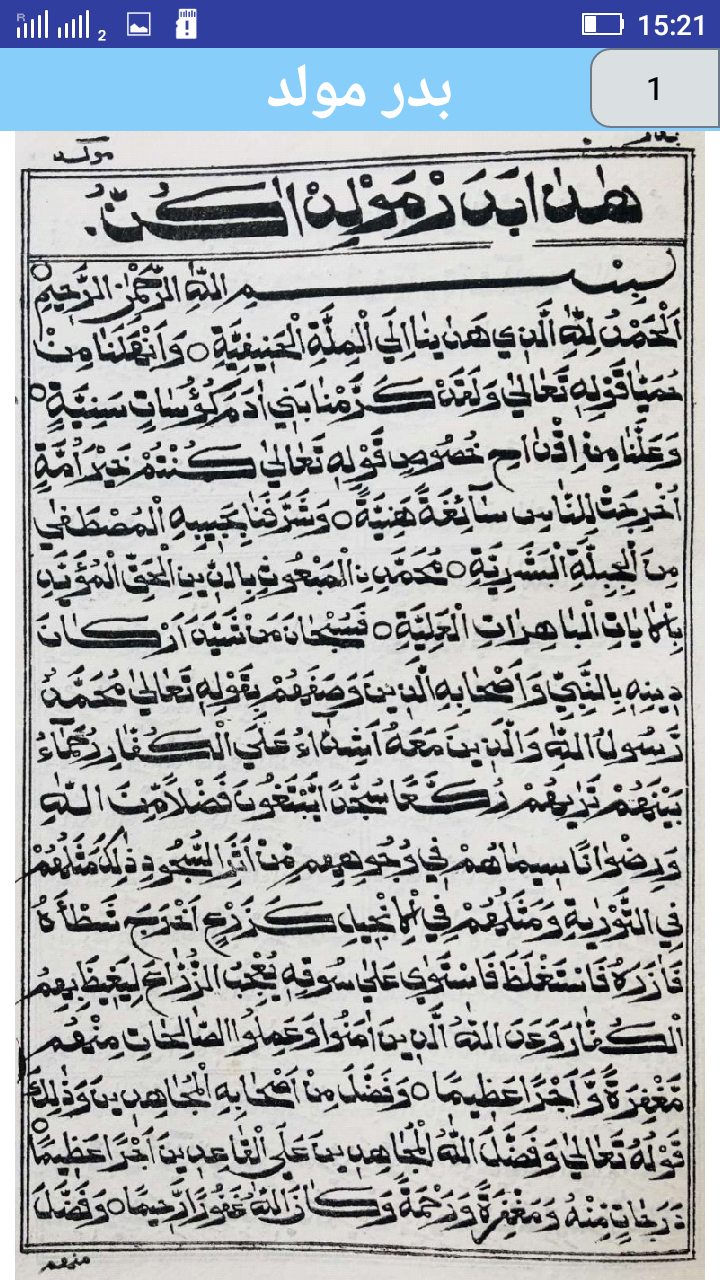 15:21
2
R
بدر مولد
1
مولد
بدر
هٰذَا بَدَرْ مَوْلِدْ اكُنُّ.
بِسْمِ اللّٰهِ الرَّحْمٰنِ الرَّحِيمِ ○
اَلْحَمْدُ لِلّٰهِ الَّذِي هَدٰينَا اِلَي الْمِلَّةِ الْحَنِيفِيَّةِ ○ وَاَنْهَلَنَا مِنْ
حُمَيَّا قَوْلِهِ تَعَالٰي وَلَقَدْ كَرَّمْنَا بَنِي اٰدَمَ كُؤُسَاتٍ سَنِيَّةٍ ○
وَعَلَّنَا مِنْ اَقْدَاحِ خُصُوصِ قَوْلِهِ تَعَالٰي كُنْتُمْ خَيْرَ اُمَّةٍ
اُخْرِجَتْ لِلنَّاسِ سَآئِغَةً هَنِيَّةً ○ وَشَرَّفَنَا بِحَبِيبِهِ الْمُصْطَفٰي
مِنَ الْجِبِلَّةِ الْبَشَرِيَّةِ ○ مُحَمَّدِ نِ الْمَبْعُوثِ بِالدِّينِ الْحَقِّ الْمُؤَيَّدِ
بِالْاٰيَاتِ الْبَاهِرَاتِ الْعَلِيَّةِ ○ فَسُبْحَانَ مَنْ شَيَّدَ اَرْكَانَ
دِينِهِ بِالنَّبِيِّ وَاَصْحَابِهِ الَّذِينَ وَصَفَهُمْ بِقَوْلِهِ تَعَالٰي مُحَمَّدٌ
رَّسُولُ اللّٰهِ وَالَّذِينَ مَعَهُ اَشِدَّاءُ عَلَي الْكُفَّارِ رُحَمَاءُ
بَيْنَهُمْ تَرٰيهُمْ رُكَّعًا سُجَّدًا يَّبْتَغُونَ فَضْلًا مِّنَ اللّٰهِ
وَرِضْوَانًا سِيمَاهُمْ فِي وُجُوهِهِمْ مِّنْ اَثَرِ السُّجُودِ ذٰلِكَ مَثَلُهُمْ
فِي التَّوْرٰيةِ وَمَثَلُهُمْ فِي الْاِنْجِيلِ كَزَرْعٍ اَخْرَجَ شَطْأَهُ
فَاٰزَرَهُ فَاسْتَغْلَظَ فَاسْتَوٰي عَلٰي سُوقِهِ يُعْجِبُ الزُّرَّاعَ لِيَغِيظَ بِهِمُ
الْكُفَّارَ وَعَدَ اللّٰهُ الَّذِينَ اٰمَنُوا وَعَمِلُوا الصَّالِحَاتِ مِنْهُمْ
مَّغْفِرَةً وَّاَجْرًا عَظِيمًا ○ وَفَضَّلَ مِنْ اَصْحَابِهِ الْمُجَاهِدِينَ وَذٰلِكَ
قَوْلُهُ تَعَالٰي وَفَضَّلَ اللّٰهُ الْمُجَاهِدِينَ عَلَي الْقَاعِدِينَ اَجْرًا عَظِيمًا ○
دَرَجَاتٍ مِنْهُ وَمَغْفِرَةً وَرَحْمَةً وَّكَانَ اللّٰهُ غَفُورًا رَّحِيمًا ○ وَفَضَّلَ
منهم